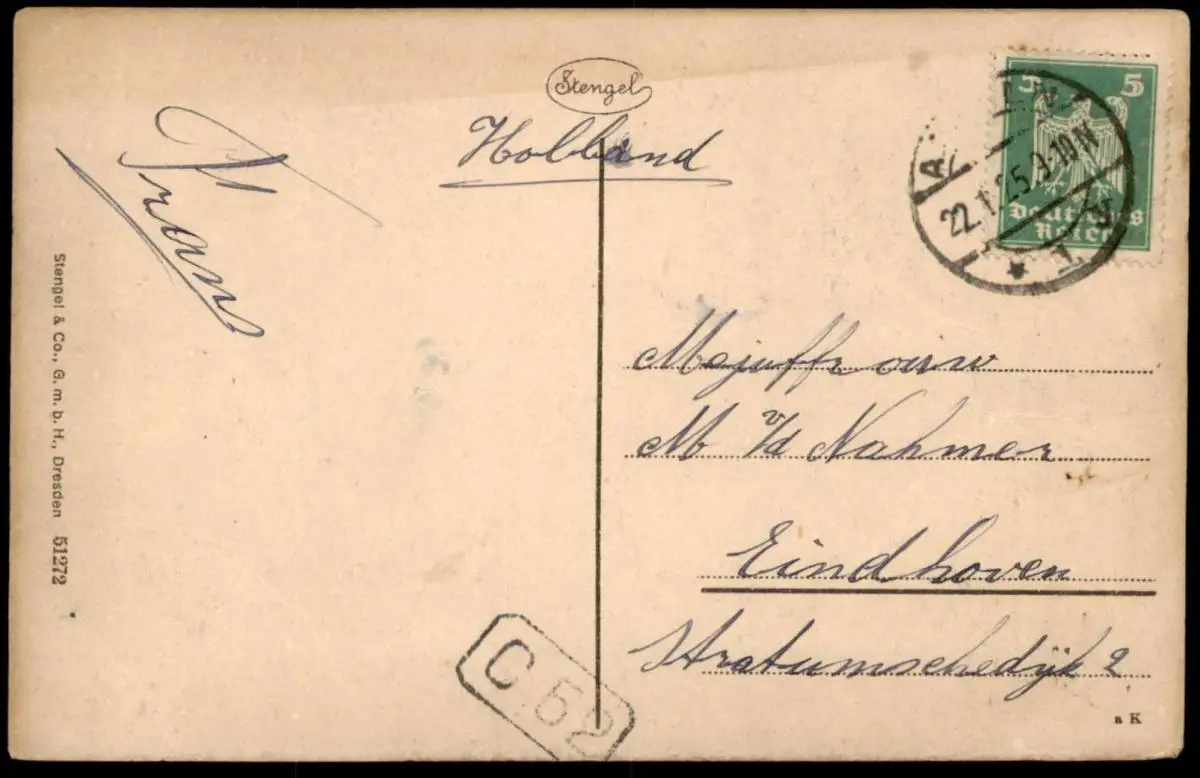 Stengel
Holland
Frans
5 5
Deutsches
Reich
22.1.25.9-10N
Mejuffrouw
M v/d Nahmer
Eindhoven
Stratumschedijk 2
C 52
Stengel & Co., G. m. b. H., Dresden 51272
a K